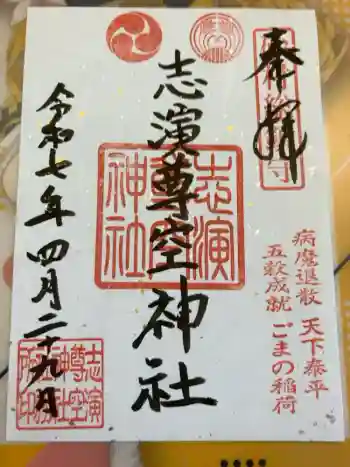 奉拝
志演尊空神社
志演
尊空
神社
病魔退散 天下泰平
五穀成就 ごまの稲荷
令和七年四月二十九日
志演
尊空
神社